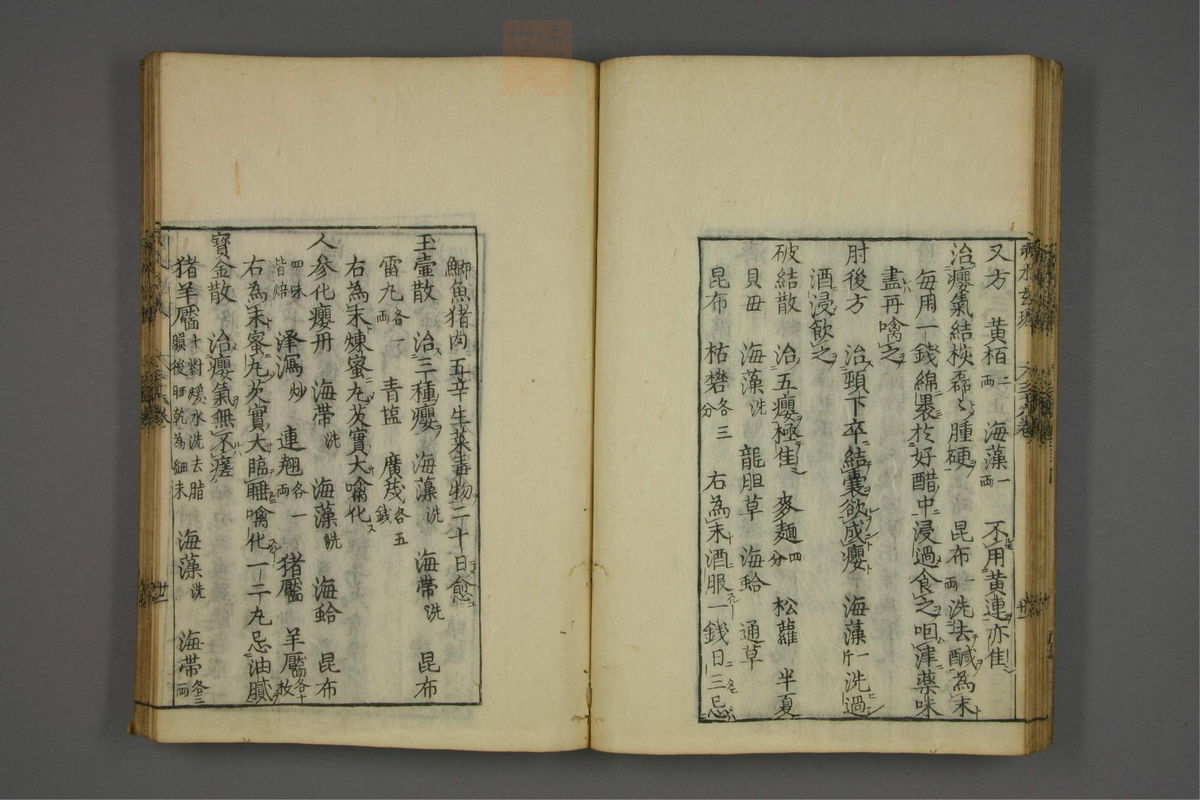 又方 黄栢二両 海藻一両 不用黄連亦佳
治癭氣結核磊〻腫硬 昆布一両洗去醎為末
毎用一錢綿裹於好醋中浸過食之咽津藥味
盡再噙之
肘後方 治頸下卒結囊欲成癭 海藻一斤洗過
酒浸飲之
破結散 治五癭極佳 麥麵四分 松蘿 半夏
貝毋 海藻洗 龍胆草 海蛤 通草
昆布 枯礬各三分 右為末酒服一錢日三忌
鯽魚猪肉五辛生菜毒物二十日愈
玉壷散 治三種癭 海藻洗 海帶洗 昆布
雷丸各一両 青塩 廣茂各五錢
右為末煉蜜丸芡實大噙化
人參化癭丹 海帶洗 海藻洗 海蛤 昆布
四味皆焙 澤瀉炒 連翹各一両 猪靨 羊靨各十枚
右為末蜜丸芡實大臨睡噙化一二丸忌油膩
寳金散 治癭氣無不瘥
猪羊靨十對煖水洗去脂膜後晒乾為細末 海藻洗 海帶各三両